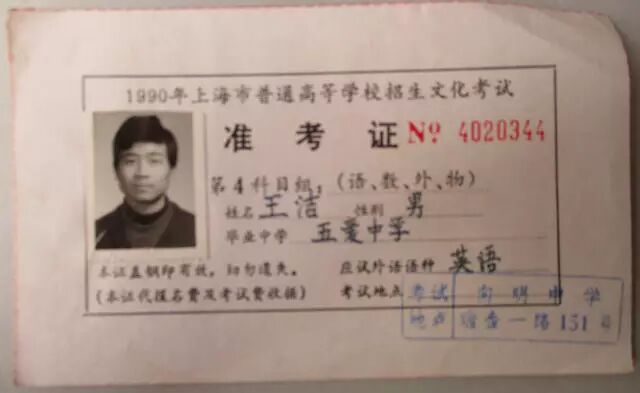 1990年上海市普通高等学校招生文化考试
准考证 No 4020344
第4科目组:(语、数、外、物)
姓名 王洁 性别 男
毕业中学 五爱中学
本证盖钢印有效,切勿遗失。 应试外语语种 英语
(本证代报名费及考试费收据) 考试地点
考试地点 向明中学
瑞金一路151号